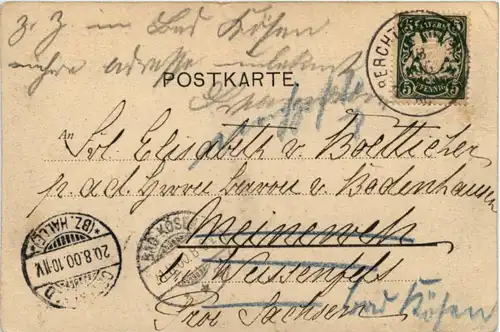 z. Z. in Bad Kösen
nähere adresse unbekannt
POSTKARTE.
BERCHT
BAYERN
5 5
PFENNIG
An
Frl. Elisabeth v. Boetticher
p. ad. Herrn Baron v. Bodenhausen
Meineweh
Weissenfels
Prov. Sachsen
Bad Kösen
(BZ. HALLE)
20.8.00.10-11V.
BAD KÖSEN